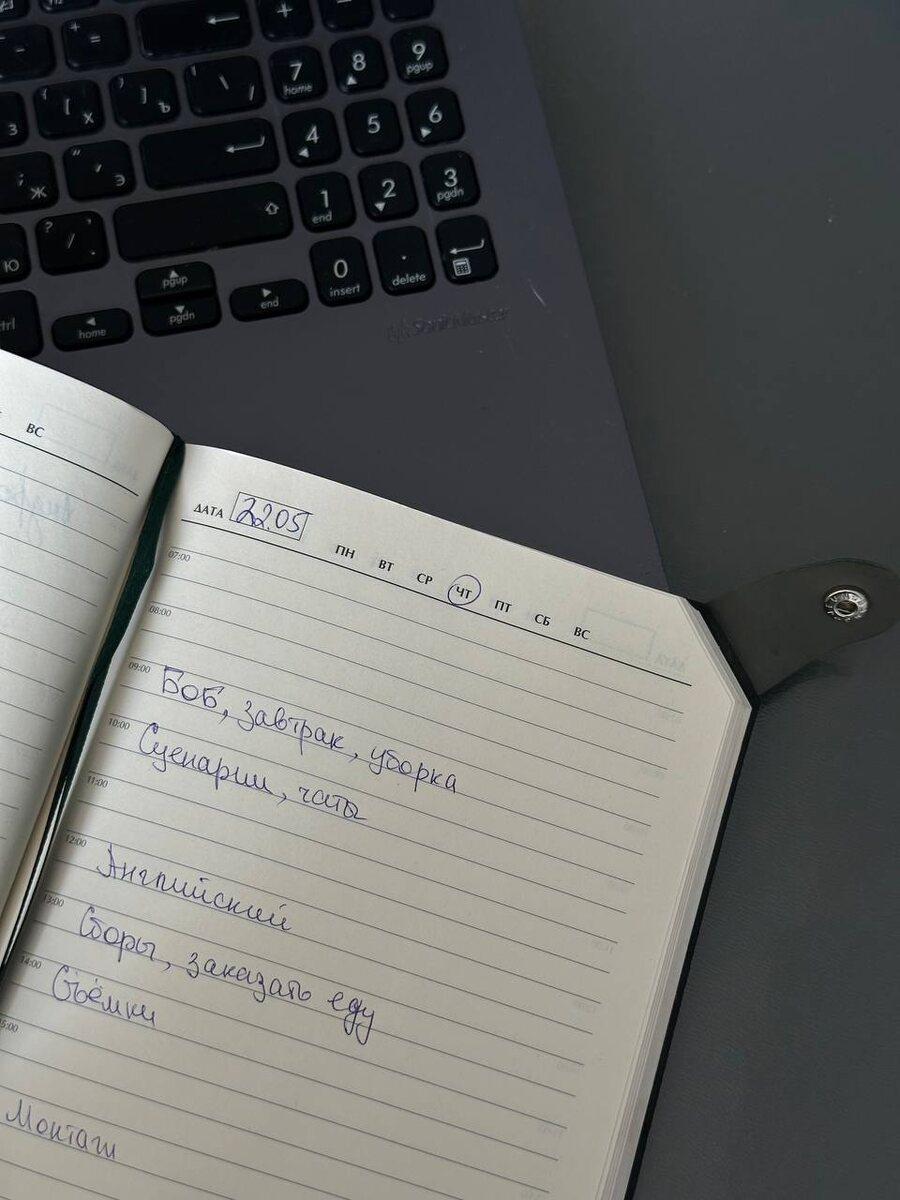 +
=
+
7
home
8
9
pgup
{
[
х
}
]
ъ
|
\
/
4
5
6
з
;
ж
"
'
э
1
end
2
3
pgdn
?
/
.
ю
0
insert
.
delete
pgup
ctrl
home
pgdn
end
SonicMaster
ВС
ДАТА 22.05
ПН ВТ СР ЧТ ПТ СБ ВС
07:00
08:00
09:00 Боб, завтрак, уборка
10:00 Сценарии, чаты
11:00
12:00 Английский
13:00 Сборы, заказать еду
14:00 Съёмки
15:00
Монтаж